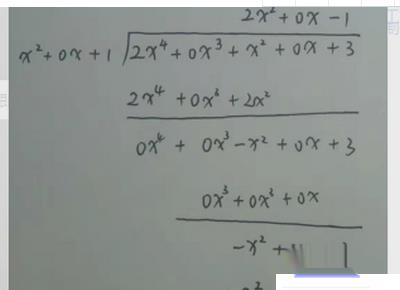 2x² + 0x - 1
x² + 0x + 1 2x⁴ + 0x³ + x² + 0x + 3
2x⁴ + 0x³ + 2x²
0x⁴ + 0x³ - x² + 0x + 3
0x³ + 0x³ + 0x
-x² +